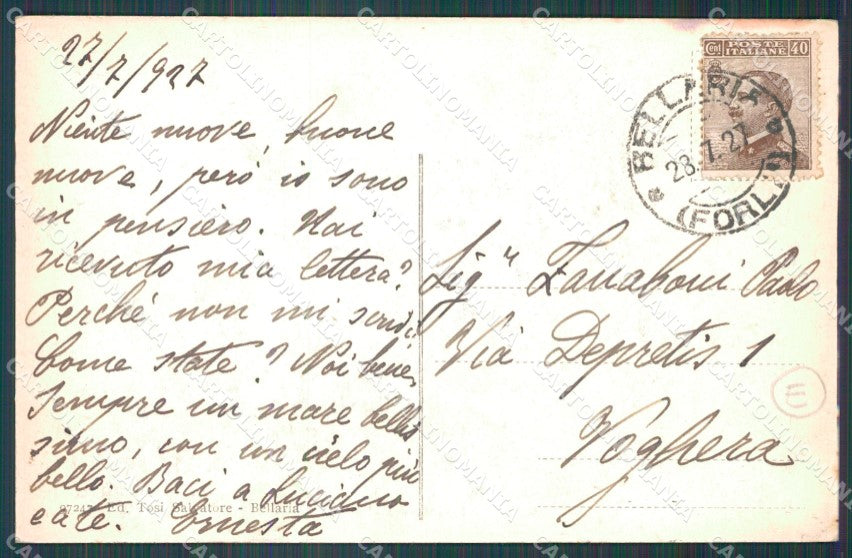 27/7/927
Niente nuove, buone
nuove, però io sono
in pensiero. Hai
ricevuto mia lettera?
Perché non mi scrivi.
Come state? Noi bene.
Sempre un mare bellis
simo, con un cielo più
bello. Baci a Luciano
e a te. Ernesta
Ed. Tosi Salvatore - Bellaria
Cent POSTE ITALIANE 40
BELLARIA
28.7.27
(FORLÌ)
Sigʳ Zanaboni Paolo
Via Depretis 1
Voghera
CARTOLINOMANIA